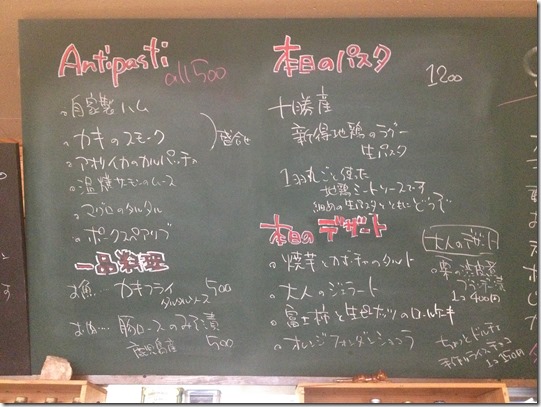 Antipasti
all 500
。自家製ハム
。カキのスモーク
。アオリイカのカルパッチョ
盛合せ
。温燻サーモンのムース
。マグロのタルタル
。ポークスペアリブ
一品料理
お魚… カキフライ 500
タルタルソース
お肉… 豚ロースのみそ漬
鹿児島産 500
本日のパスタ
1200
十勝産
新得地鶏のラグー
生パスタ
1羽丸ごと使った
地鶏ミートソースです
細めの生パスタとともにどうぞ
本日のデザート
。焼芋とカボチャのタルト
。大人のジェラート
。富士柿と生のロールケーキ
。オレンジフォンダンショコラ
大人のデザート
ブランデー
1コ 400円
ちょいとドルチェ
1コ 150円